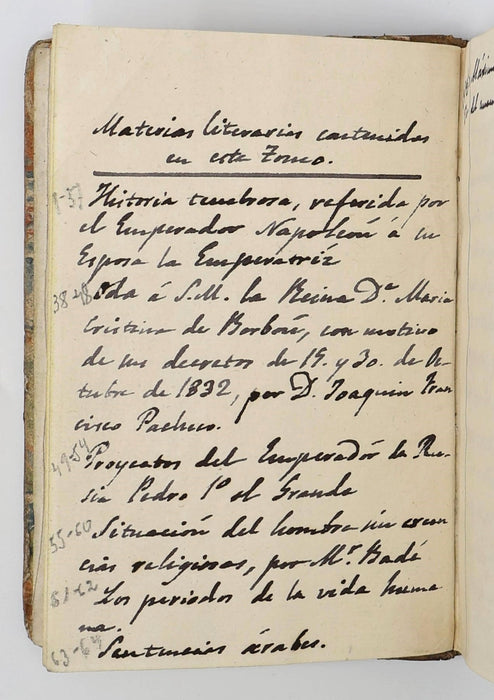 Materias literarias contenidas
en este Tomo.
1-37 Historia tenebrosa, referida por
el Emperador Napoleón á su
Esposa la Emperatríz
38-48 Oda á S.M. la Reina D.ª Maria
Cristina de Borbón, con motivo
de sus decretos de 15. y 30. de Oc-
tubre de 1832, por D. Joaquin Fran
cisco Pacheco.
49-54 Proyectos del Emperadór de Ru-
sia Pedro 1º el Grande
55-60 Situación del hombre sin creen
cias religiosas, por Mr. Badé
61-62 Los periodos de la vida huma
na.
63-64 Sentencias árabes.